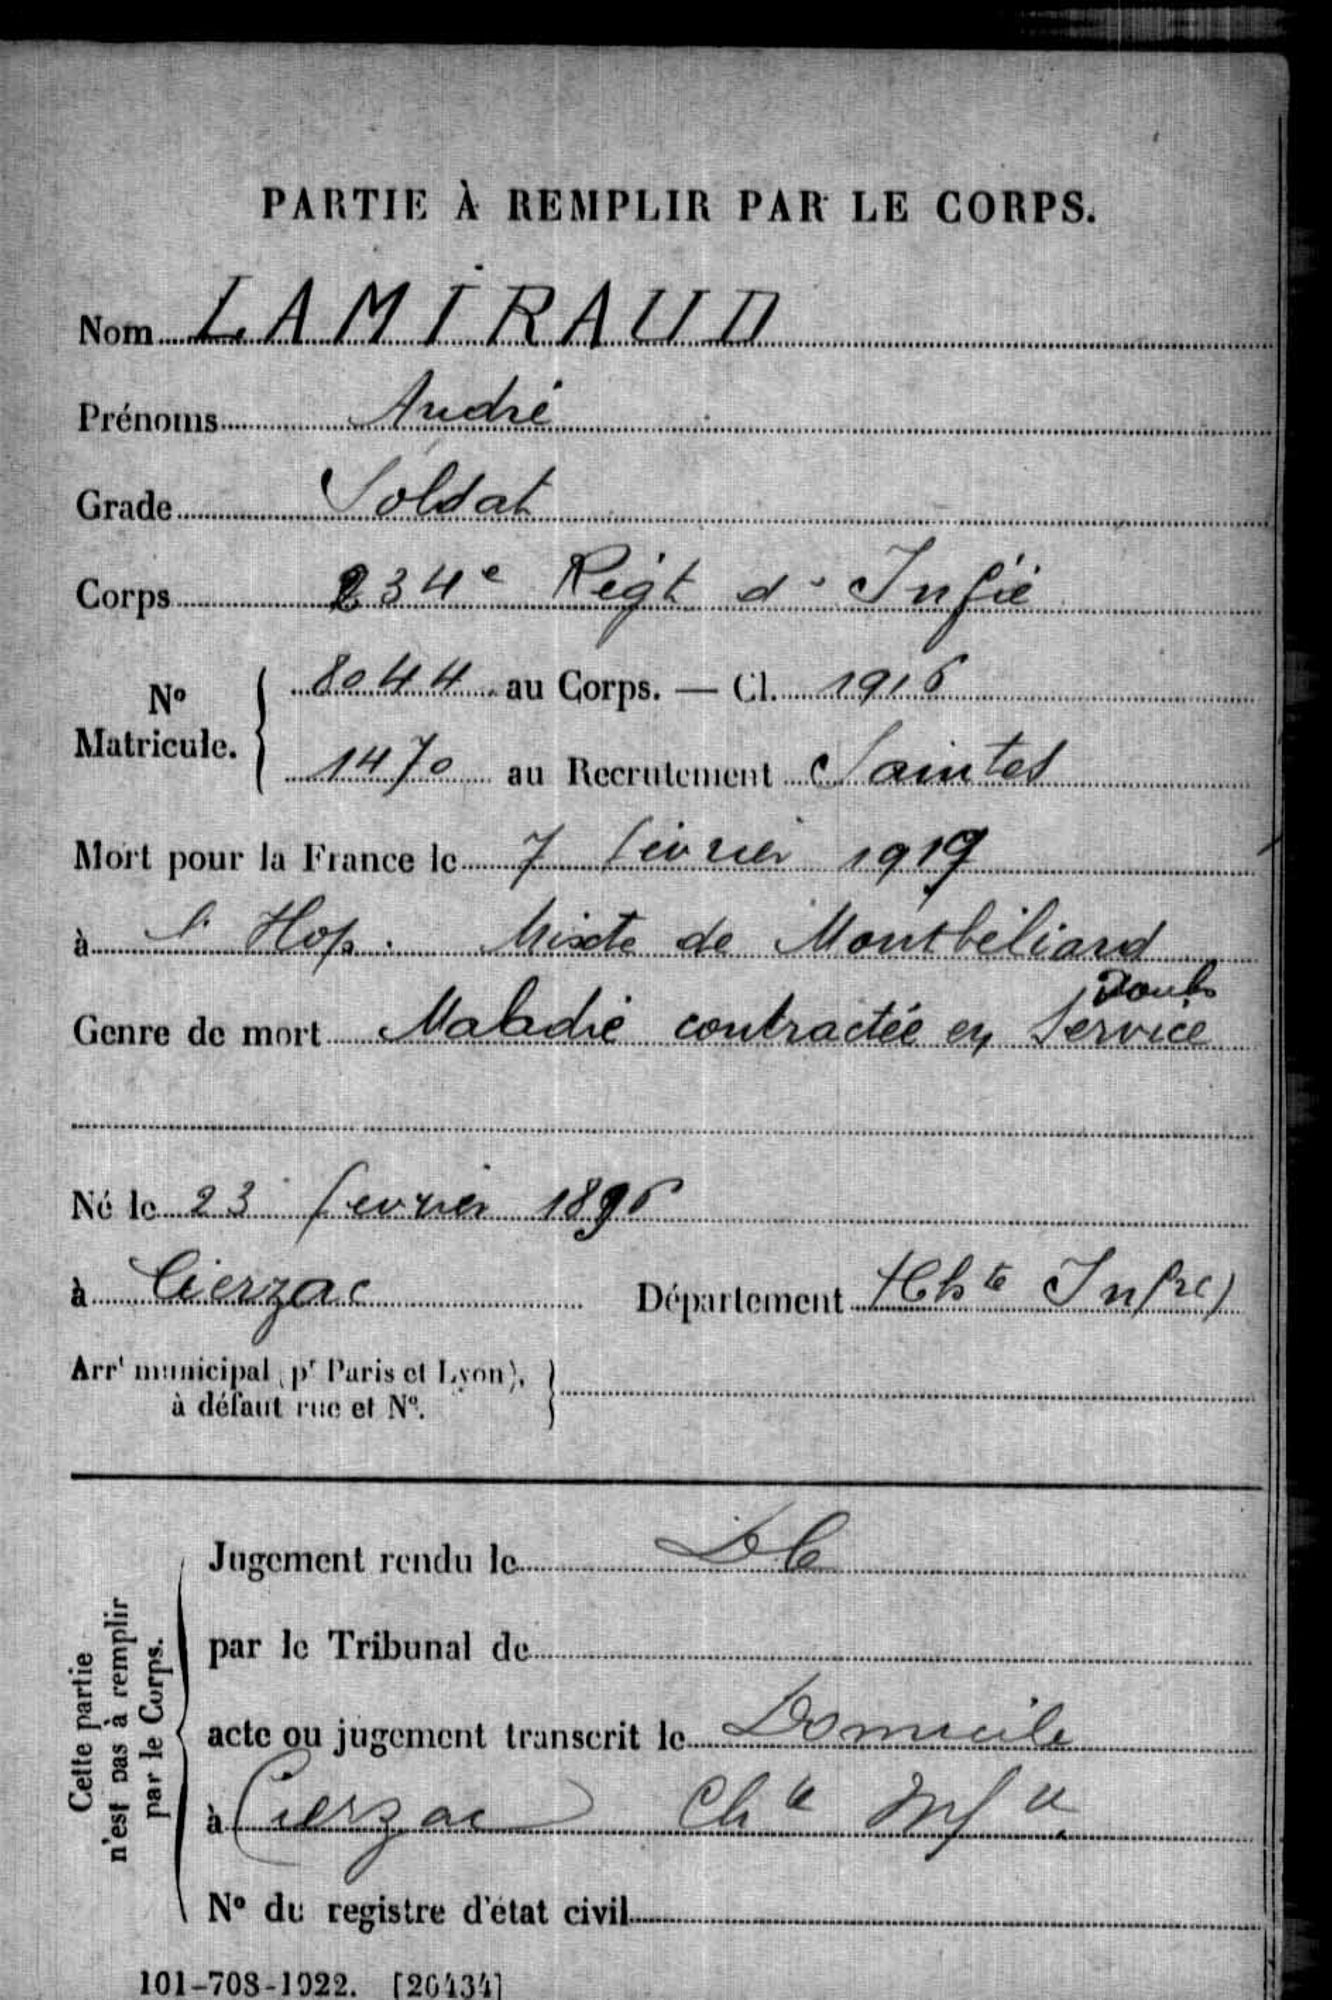 PARTIE À REMPLIR PAR LE CORPS.
Nom LAMIRAUD
Prénoms André
Grade Soldat
Corps 234e Régt d'Infie
No Matricule. 8044 au Corps. — Cl. 1916
1470 au Recrutement Saintes
Mort pour la France le 7 février 1917
à l'Hop. Mixte de Montbéliard
Doubs
Genre de mort Maladie contractée en Service
Né le 23 fevrier 1896
à Cierzac Département (Chte Infre)
Arrt municipal (pr Paris et Lyon),
à défaut rue et No.
Cette partie
n'est pas à remplir
par le Corps.
Jugement rendu le DC
par le Tribunal de
acte ou jugement transcrit le Domicile
à Cierzac Chte Infre
No du registre d'état civil
101-708-1922. [26434]